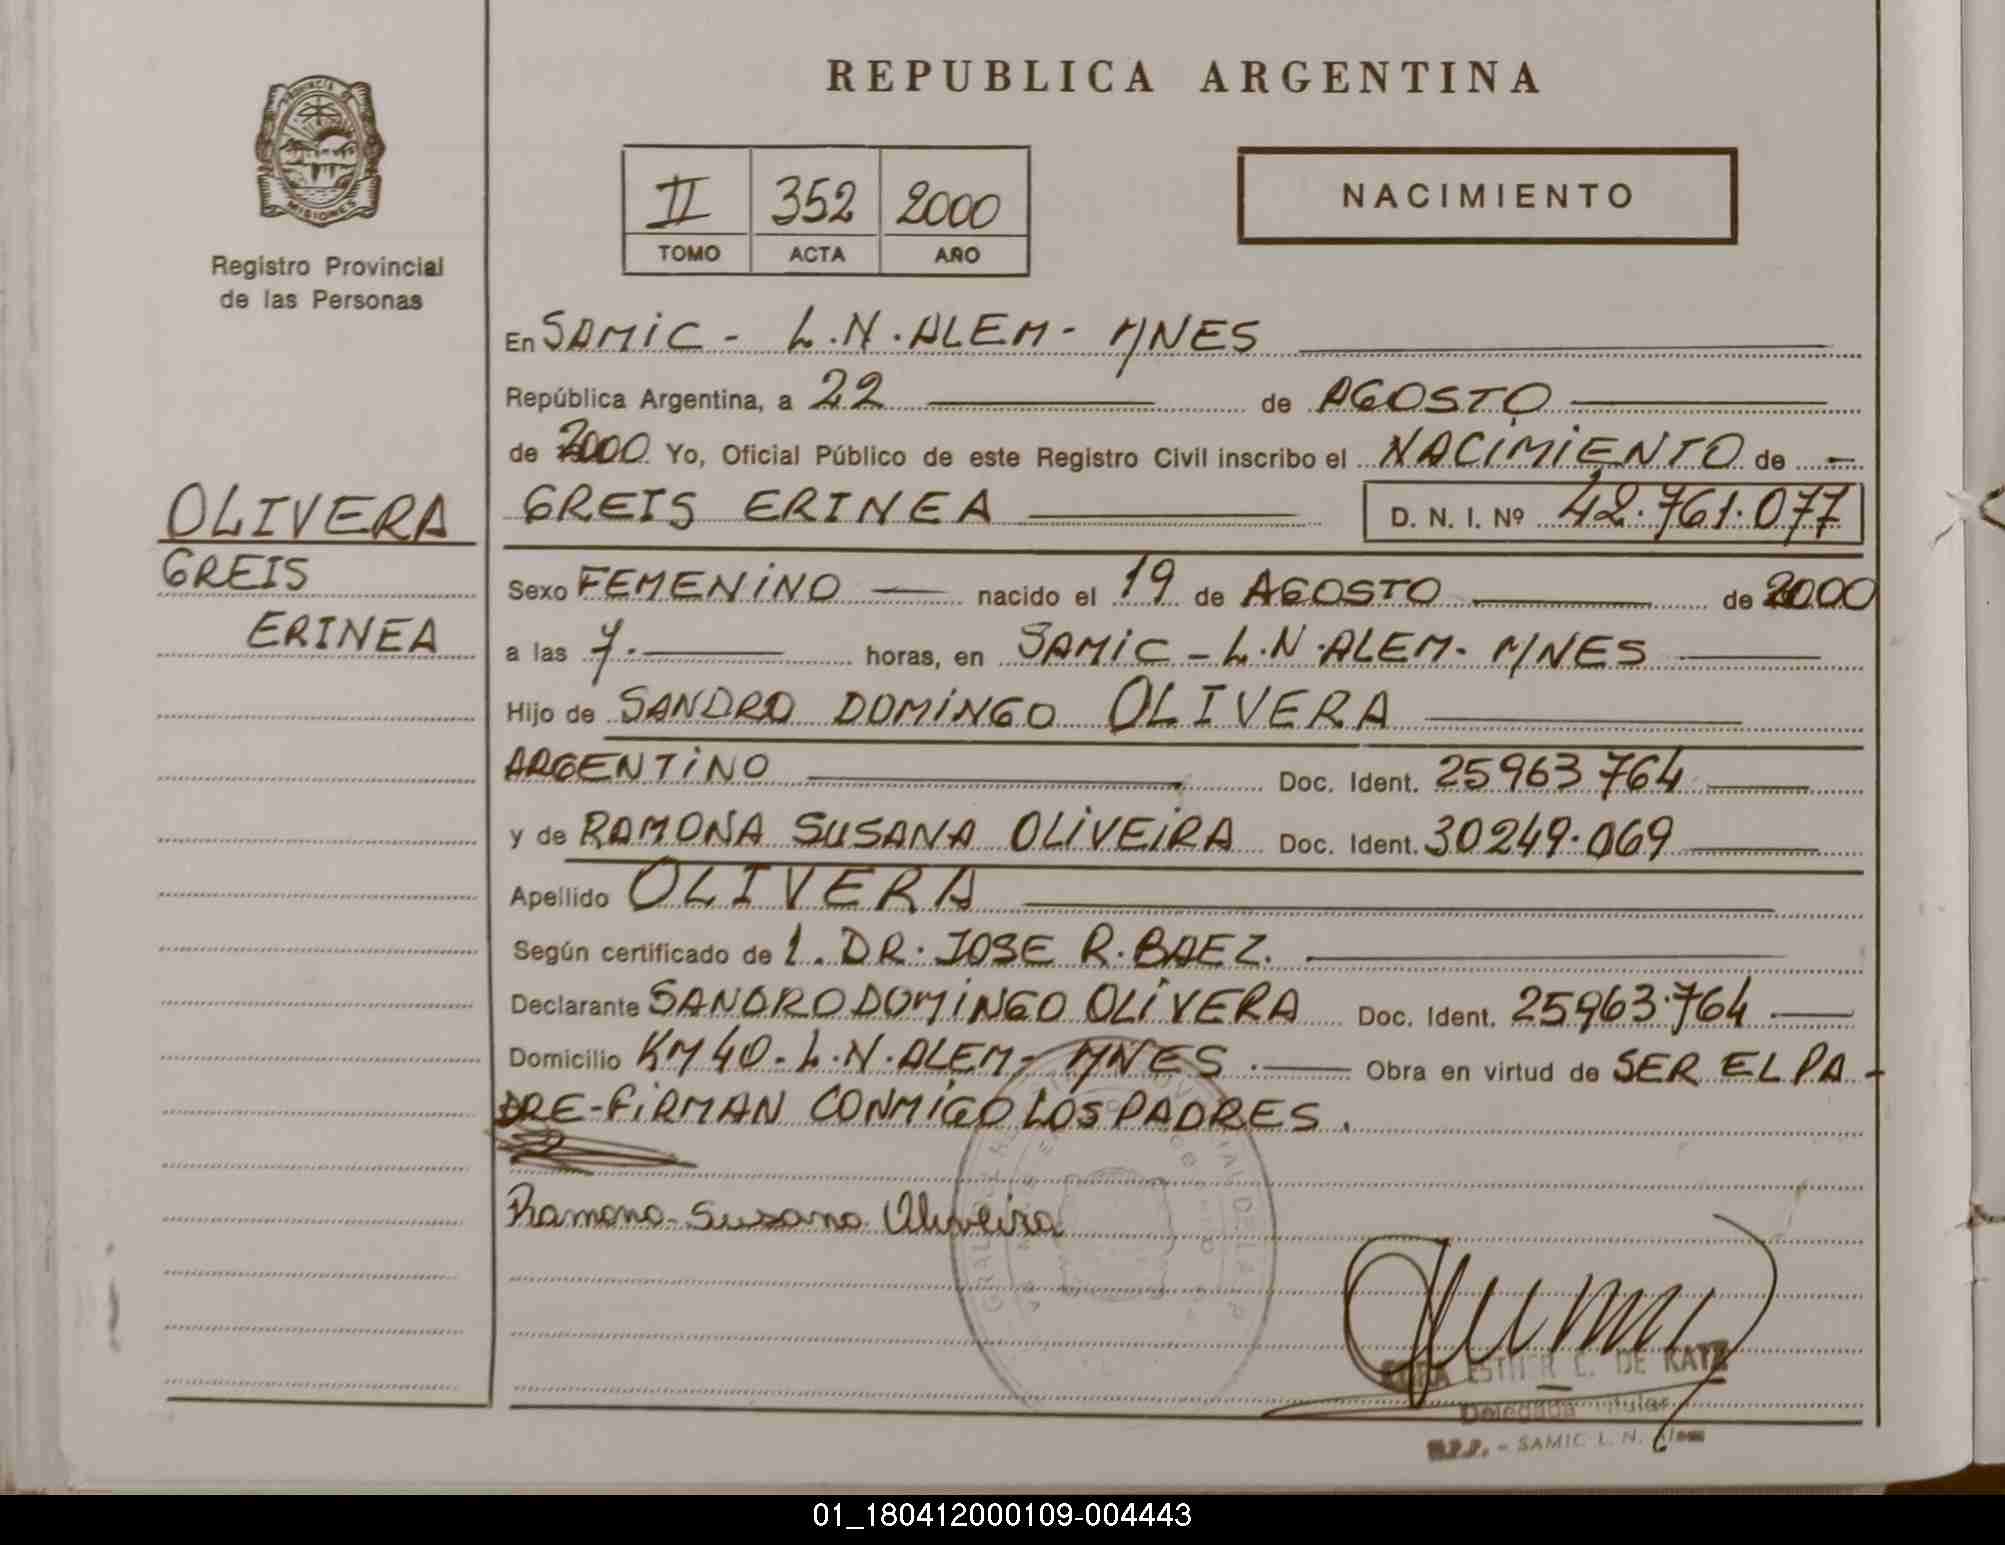 REPUBLICA ARGENTINA
PROVINCIA DE
MISIONES
Registro Provincial
de las Personas
II 352 2000
TOMO ACTA AÑO
NACIMIENTO
En SAMIC - L.N. ALEM - M/NES
República Argentina, a 22 de AGOSTO
de 2000 Yo, Oficial Público de este Registro Civil inscribo el NACIMIENTO de -
OLIVERA
GREIS
ERINEA
GREIS ERINEA D. N. I. Nº 42.761.077
Sexo FEMENINO nacido el 19 de AGOSTO de 2000
a las 7. horas, en SAMIC - L.N. ALEM - M/NES
Hijo de SANDRO DOMINGO OLIVERA
ARGENTINO Doc. Ident. 25963764
y de RAMONA SUSANA OLIVEIRA Doc. Ident. 30249.069
Apellido OLIVERA
Según certificado de 1. DR. JOSE R. BAEZ.
Declarante SANDRO DOMINGO OLIVERA Doc. Ident. 25963.764
Domicilio KM 40 - L.N. ALEM - M/NES . Obra en virtud de SER EL PA-
DRE - FIRMAN CONMIGO LOS PADRES.
Ramona Susana Oliveira
ESTHER C. DE KATZ
Delegada Titular
R.P.P. - SAMIC L. N. Alem
01_180412000109-004443